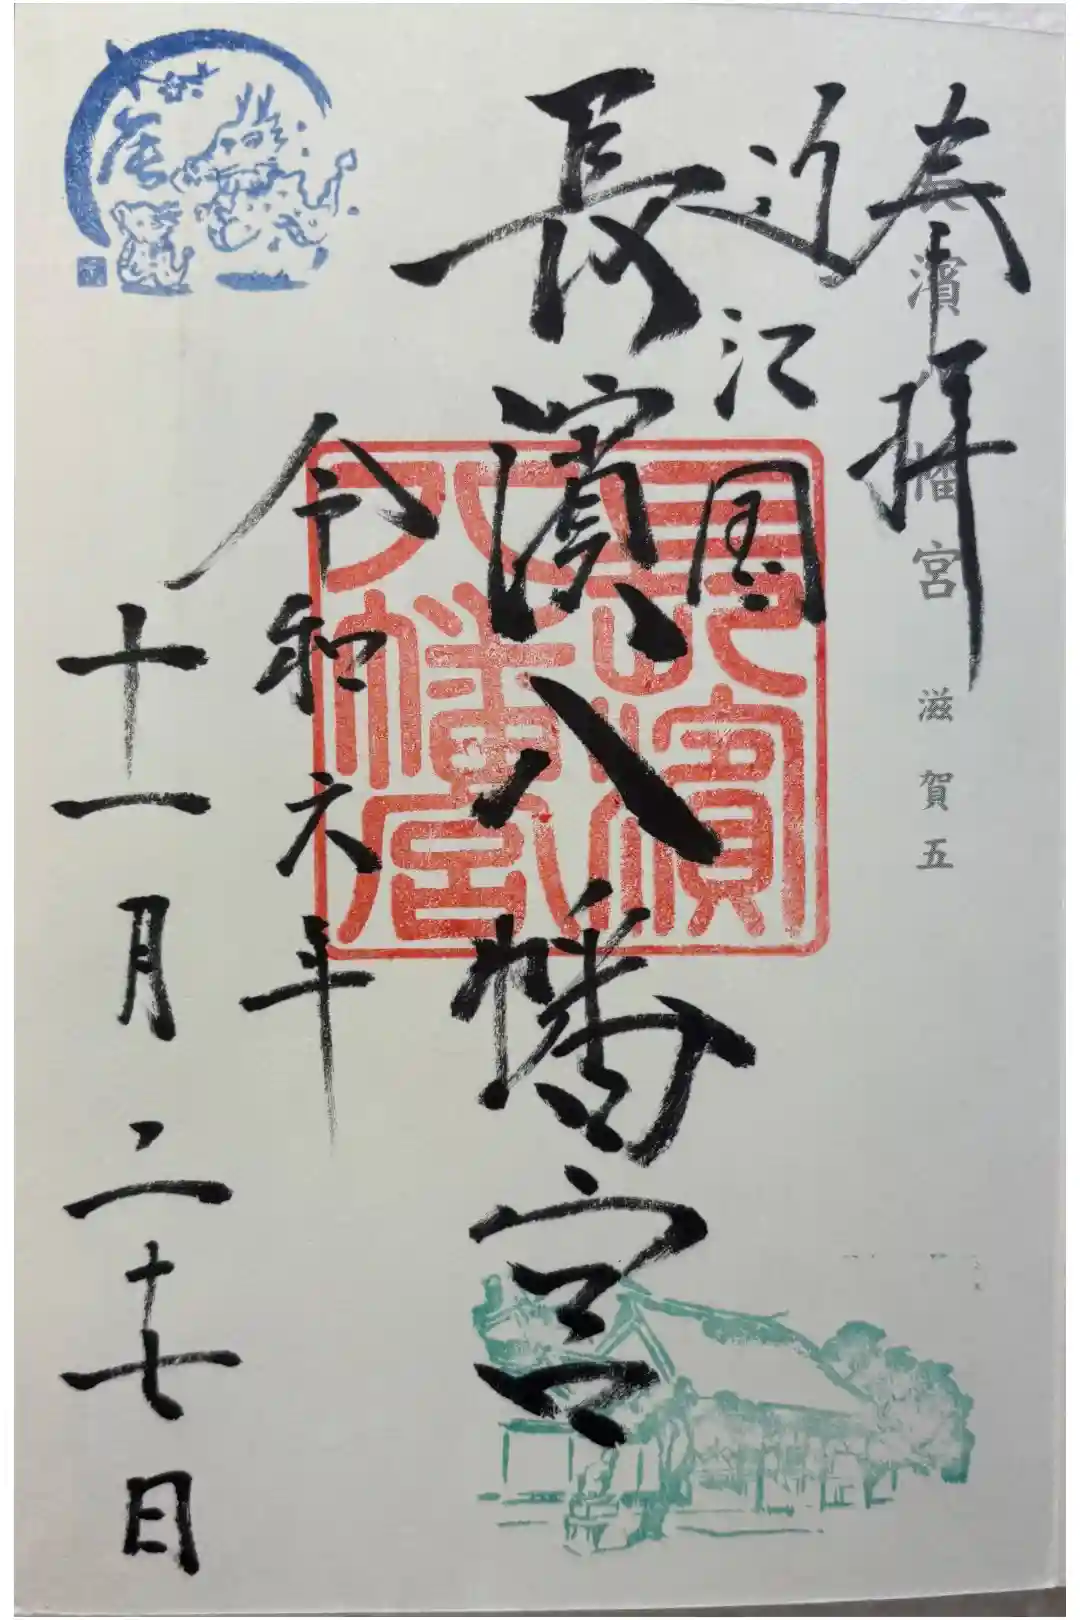 奉拝
長濱八幡宮 滋賀五
近江国
長濱八幡宮
長濱
八幡宮
令和六年
十一月二十七日